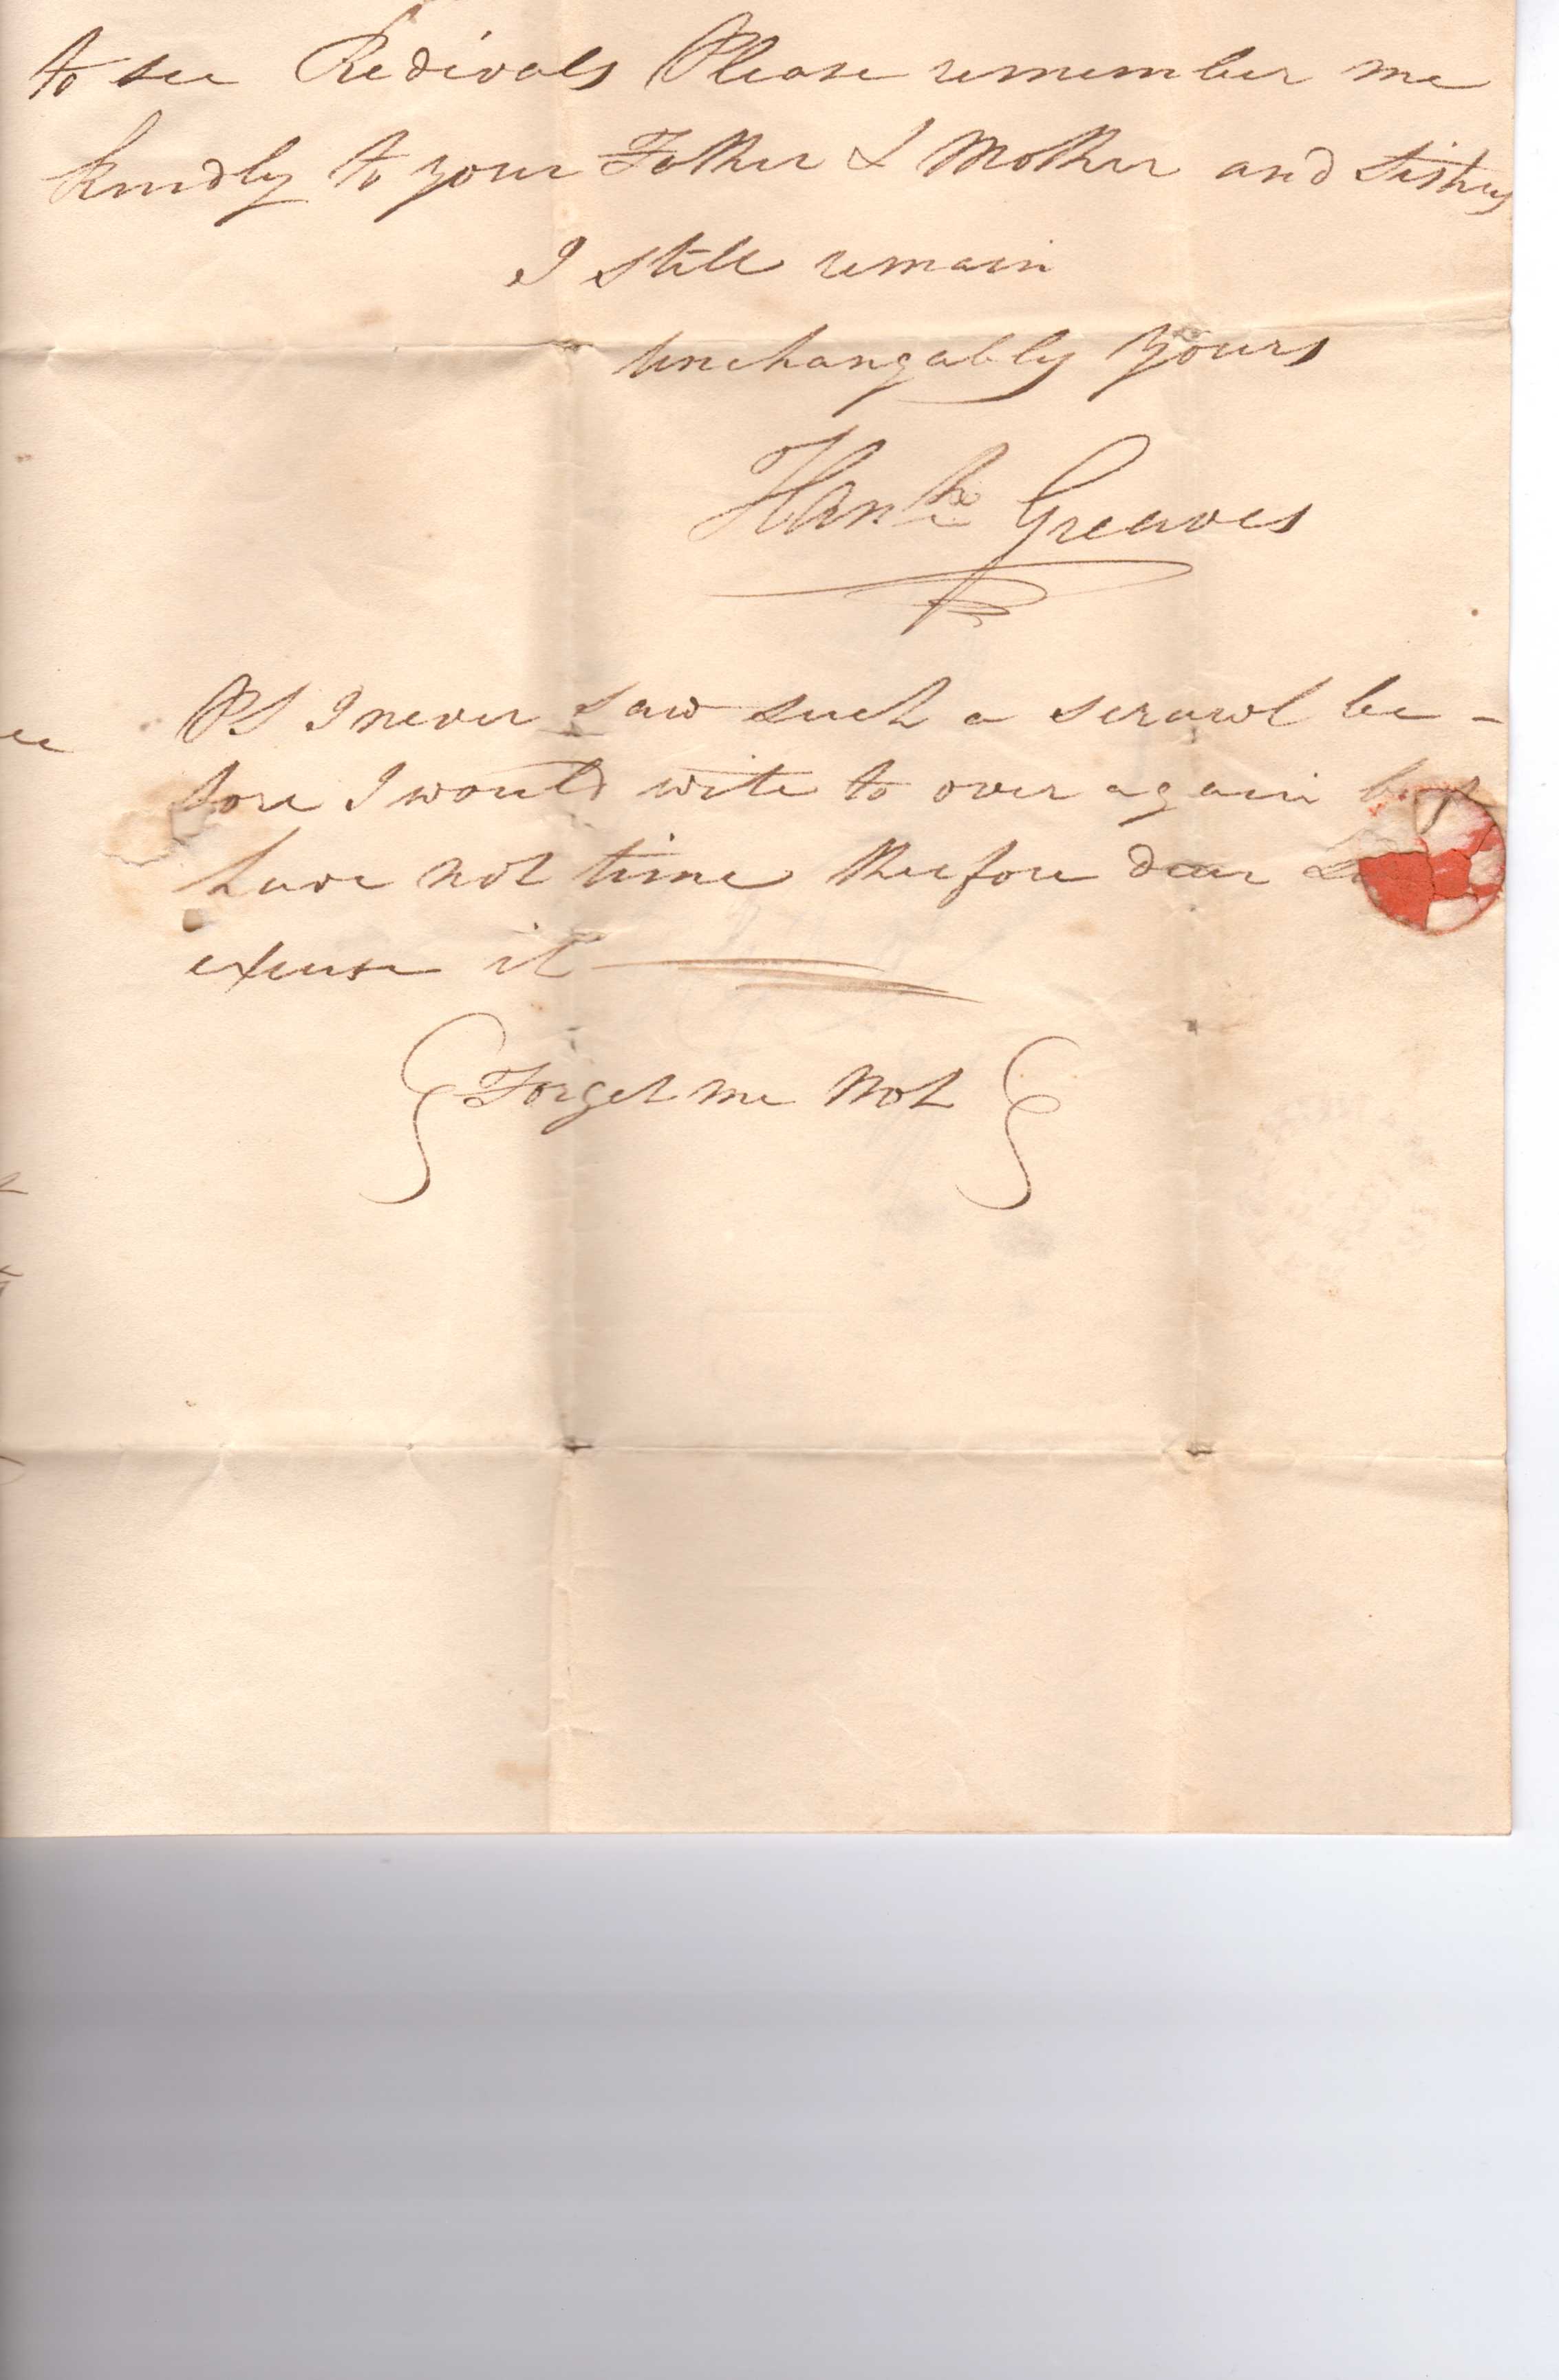 to see Redivals Please remember me
kindly to your Father & Mother and Sisters
I still remain
unchangably yours
Hanh Greaves
PS I never saw such a scrawl be-
fore I would write to over again but
have not time theefore dear
excuse it
Forget me Not